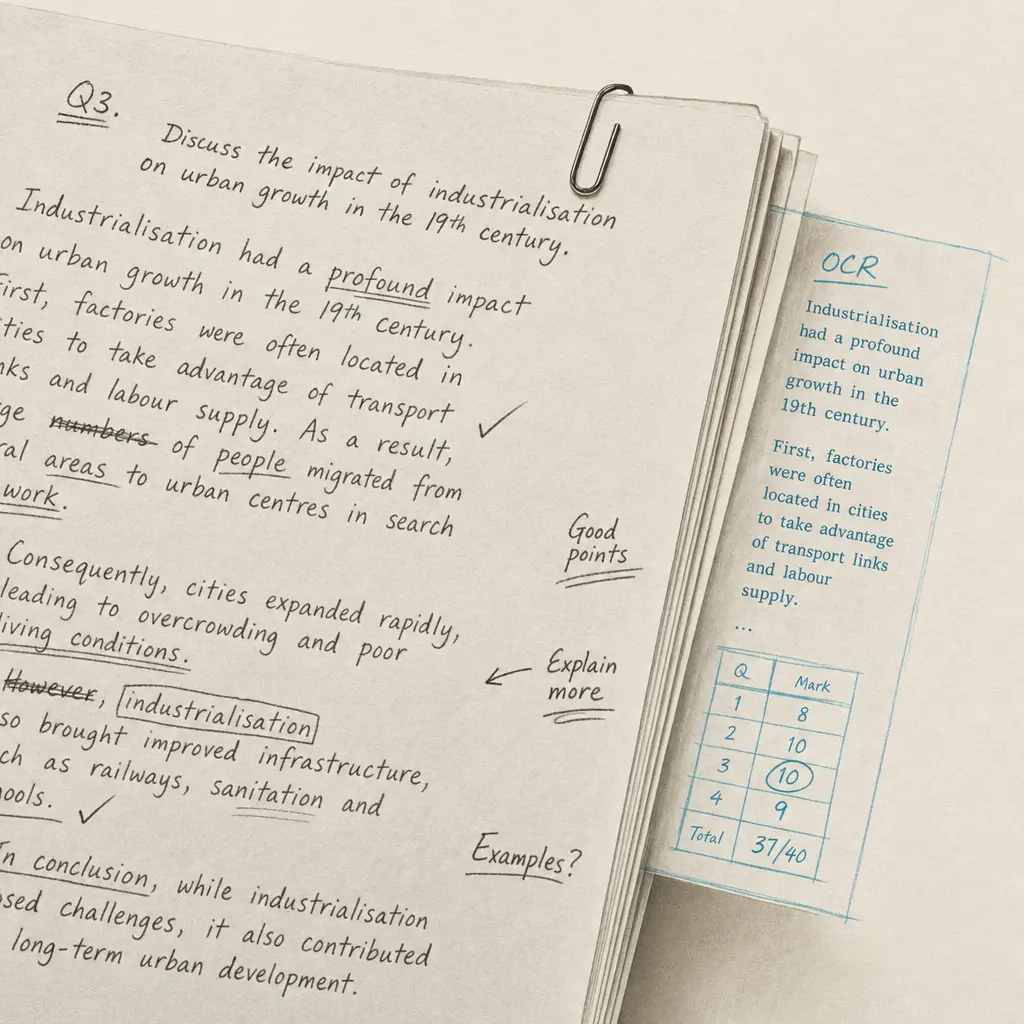 Q3.
Discuss the impact of industrialisation
on urban growth in the 19th century.
Industrialisation had a profound impact
on urban growth in the 19th century.
First, factories were often located in
ties to take advantage of transport
nks and labour supply. As a result,
ge numbers of people migrated from
ral areas to urban centres in search
work.
Consequently, cities expanded rapidly,
leading to overcrowding and poor
living conditions.
However, industrialisation
so brought improved infrastructure,
ch as railways, sanitation and
ools.
In conclusion, while industrialisation
osed challenges, it also contributed
long-term urban development.
Good
points
Explain
more
Examples?
OCR
Industrialisation
had a profound
impact on urban
growth in the
19th century.
First, factories
were often
located in cities
to take advantage
of transport links
and labour
supply.
...
Q Mark
1 8
2 10
3 10
4 9
Total 37/40